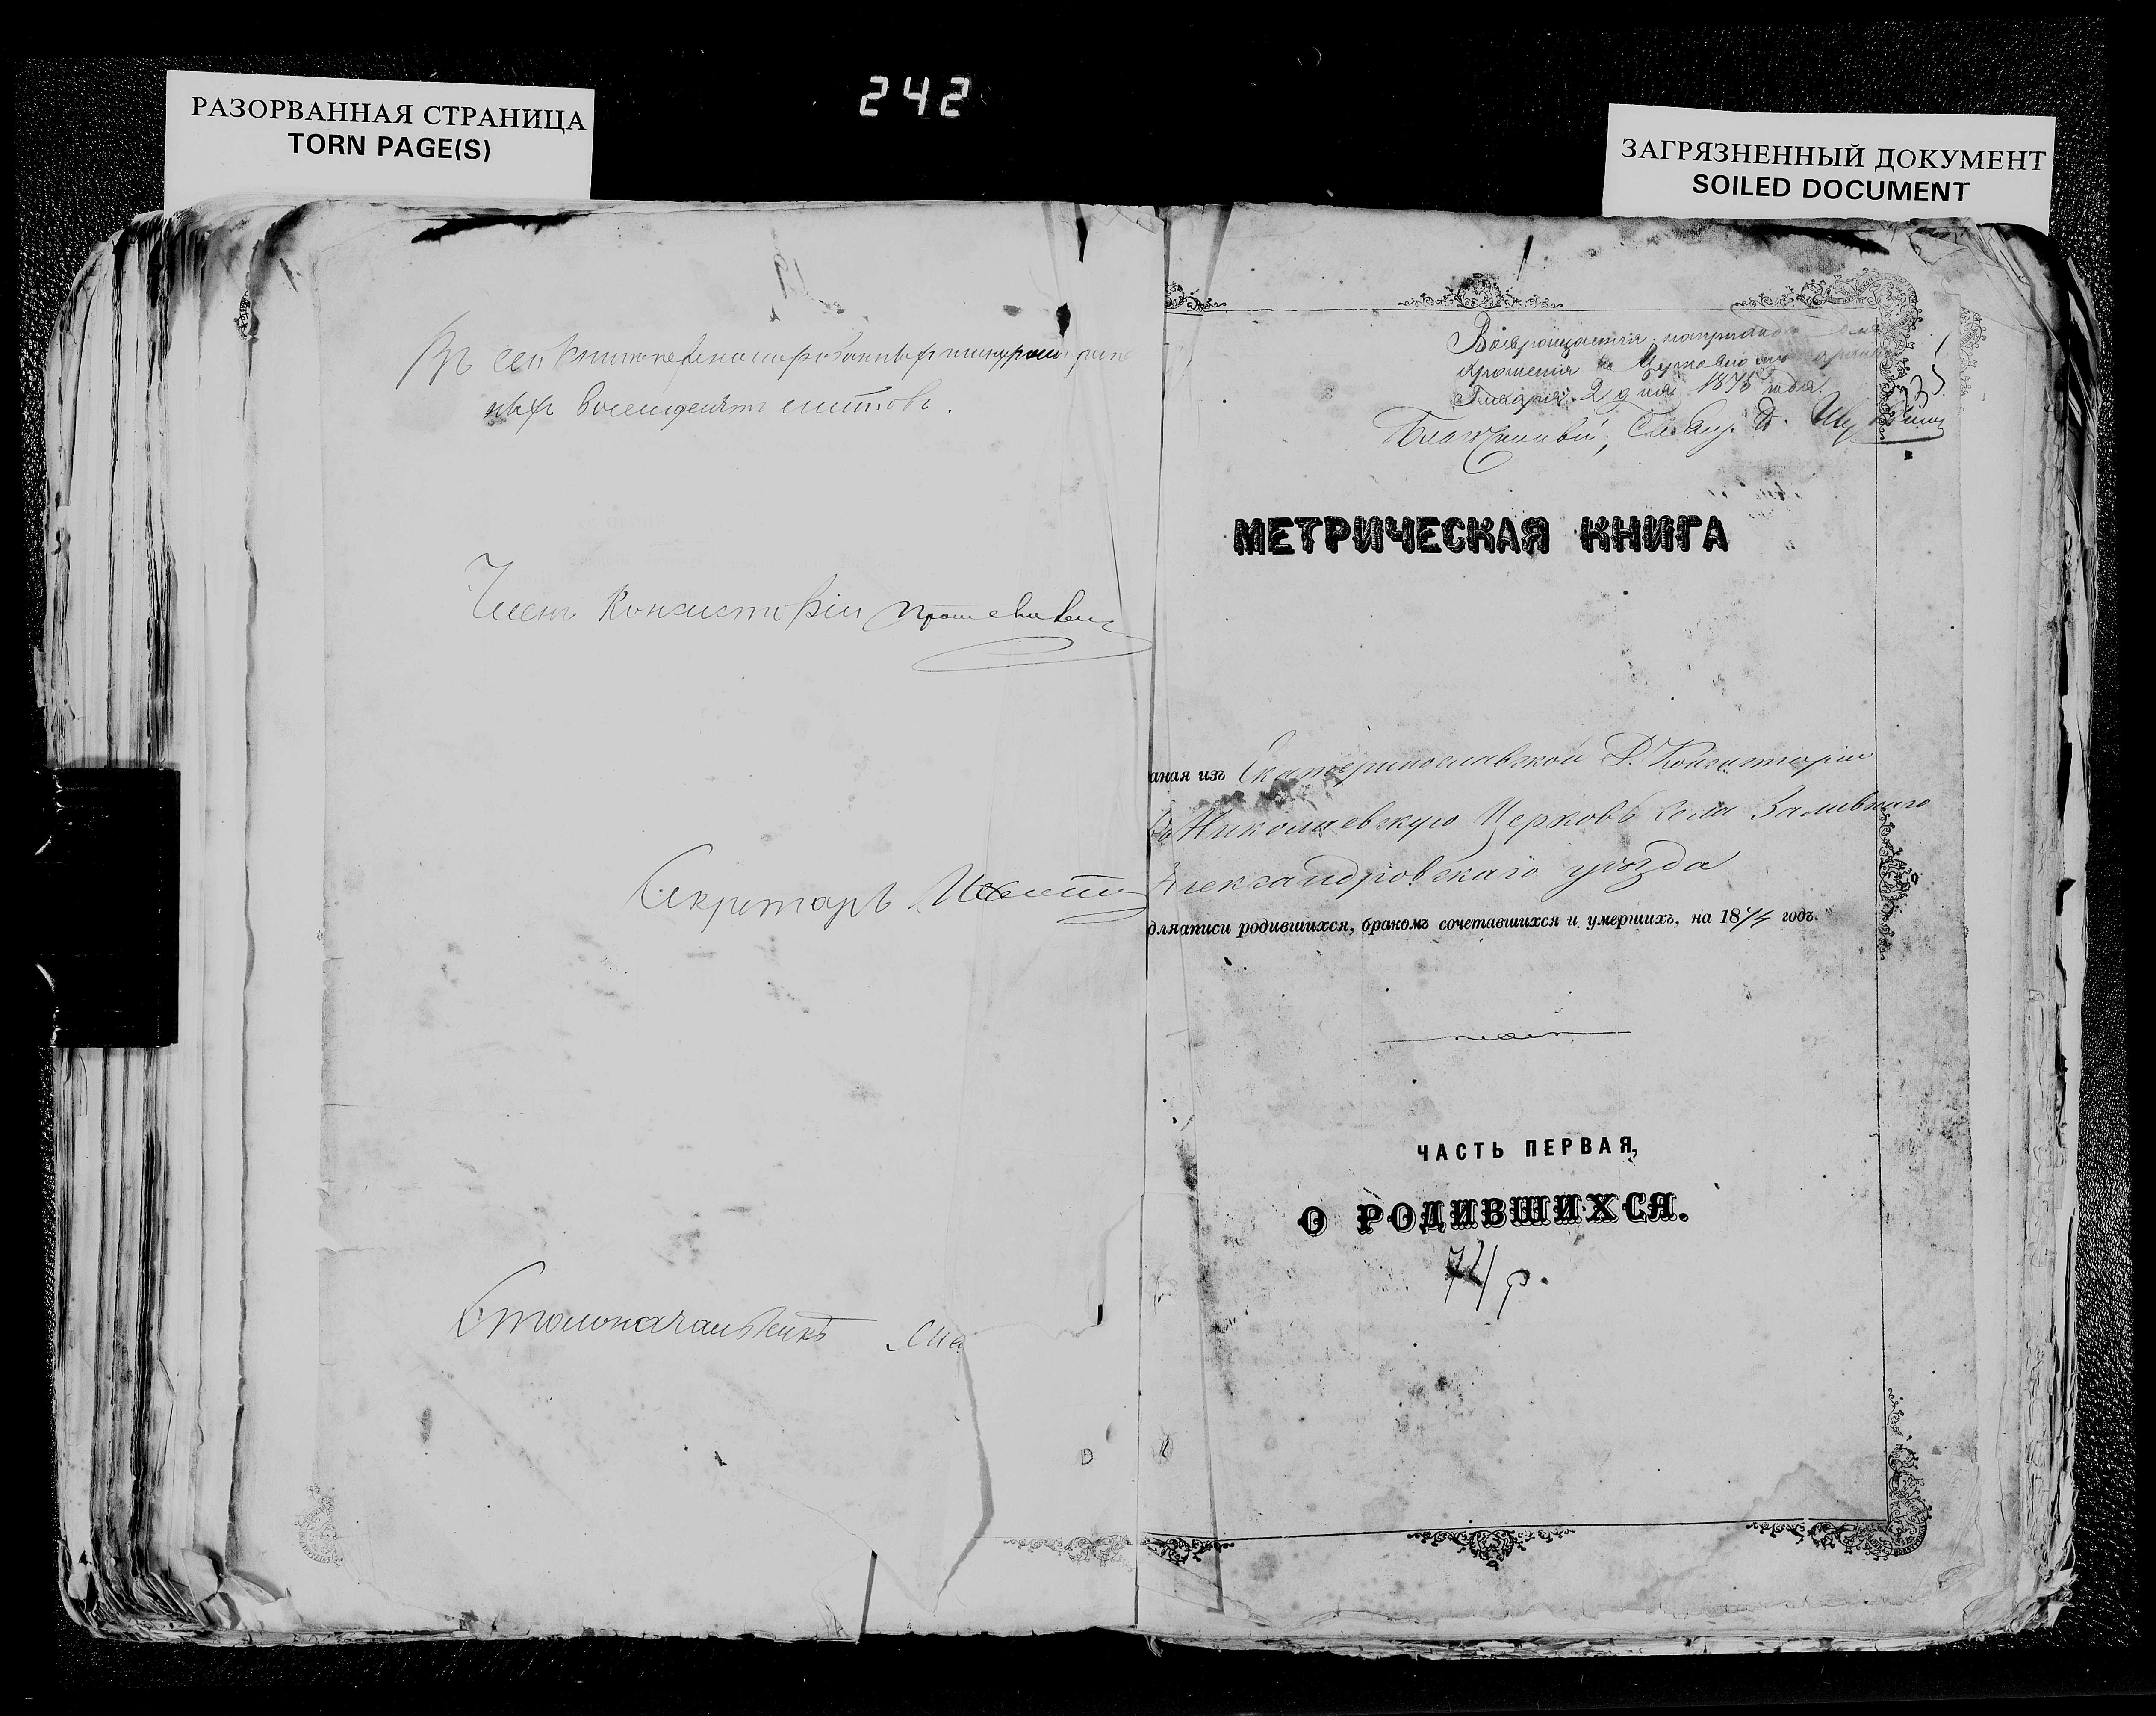 РАЗОРВАННАЯ СТРАНИЦА
TORN PAGE(S)
242
ЗАГРЯЗНЕННЫЙ ДОКУМЕНТ
SOILED DOCUMENT
Въ сей книгѣ
восемдесятъ листовъ.
Членъ Консисторіи
Секретарь
Столоначальникъ
Возвращается
храненія въ Церковномъ
Генваря 2 дня 1875 года.
Благочинный, Свящ.
МЕТРИЧЕСКАЯ КНИГА
аная изъ Екатеринославской Д. Консисторіи
въ Николаевскую Церковь села Заливнаго
Александровскаго уѣзда
для аписи родившихся, бракомъ сочетавшихся и умершихъ, на 1874 годъ.
ЧАСТЬ ПЕРВАЯ,
О РОДИВШИХСЯ.
74 р.